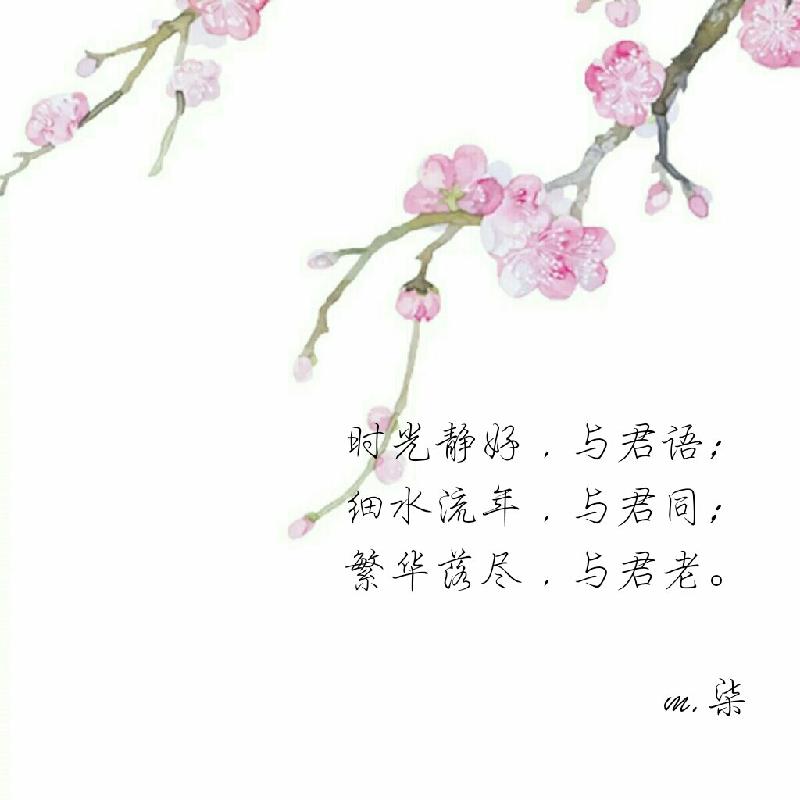 时光静好，与君语；
细水流年，与君同；
繁华落尽，与君老。
m.柒